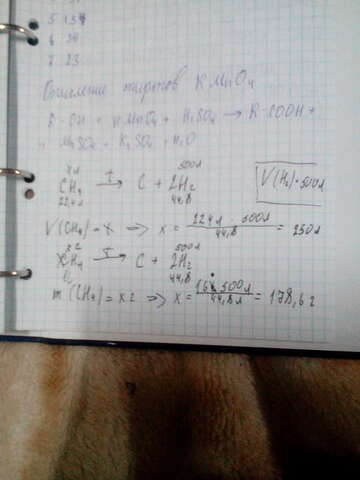 5 134
6 34
7 23
Окисление спиртов KMnO4
R-OH + KMnO4 + H2SO4 → R-COOH +
MnSO4 + K2SO4 + H2O
x л 500 л
CH4 →t C + 2H2
22,4 л 44,8
V(H2) = 500 л
V(CH4) = x => x = 22,4 л · 500 л / 44,8 = 250 л
x г 500 л
CH4 →t C + 2H2
44,8
m(CH4) = x г => x = 16 · 500 л / 44,8 л = 178,6 г